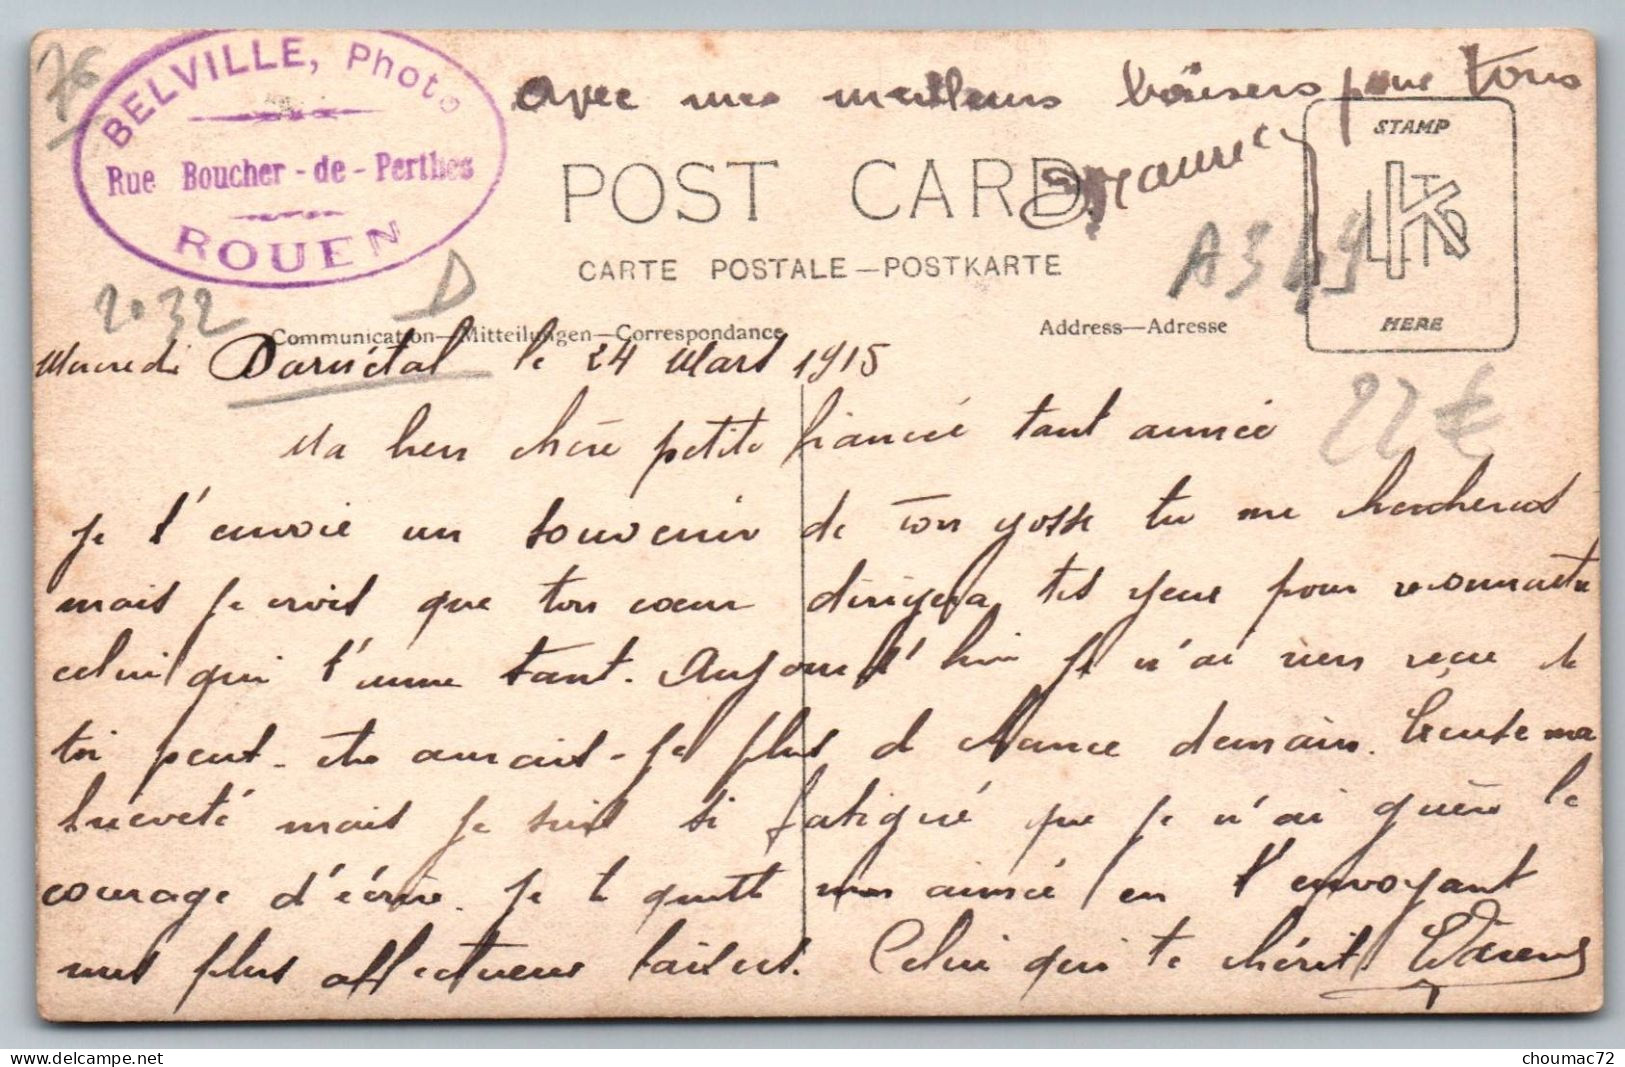 76
BELVILLE, Photo
Rue Boucher-de-Perthes
ROUEN
avec mes meilleurs baisers pour tous
Maurice
STAMP
HERE
POST CARD
CARTE POSTALE—POSTKARTE
A349
2032 D
Communication—Mitteilungen—Correspondance
Address—Adresse
Mercredi Darnétal le 24 Mars 1915
22€
Ma bien chère petite fiancée tant aimée
je t'envoie un souvenir de ton gosse tu me chercheras
mais je crois que ton cœur dirigera tes yeux pour reconnaitre
celui qui t'aime tant. Aujourd'hui je n'ai rien reçu de
toi peut-etre aurais-je plus de chance demain. Excuse ma
brieveté mais je suis si fatigué que je n'ai guère le
courage d'écrire. je te quitte mon aimée en t'envoyant
mes plus affectueux baisers. Celui qui te chérit
choumac72